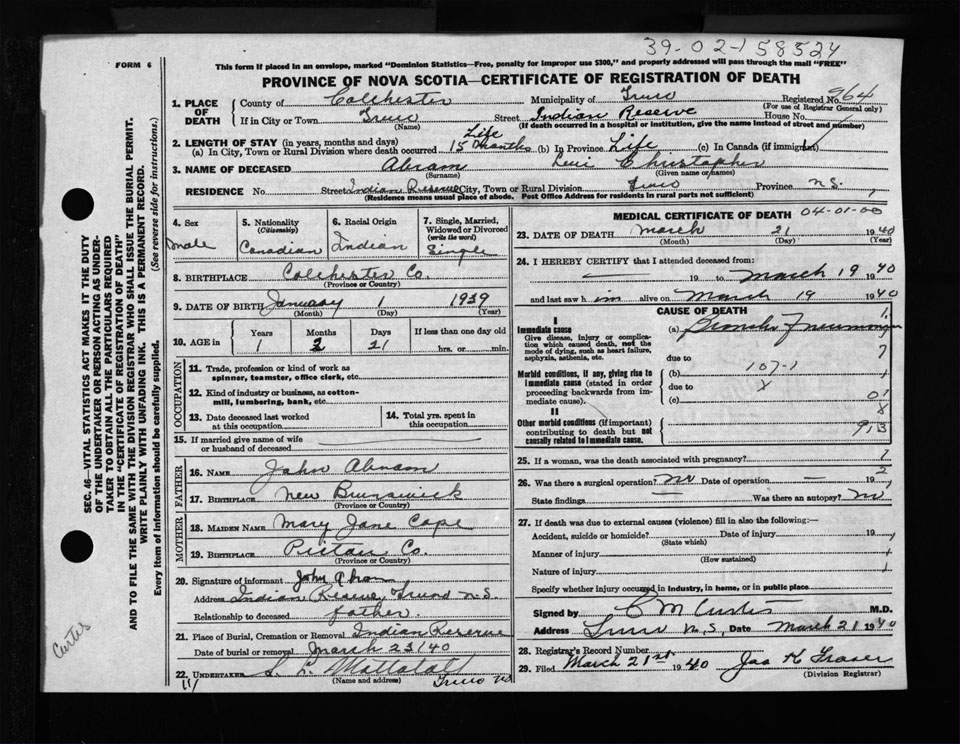 39-02-158524
FORM 6
This form if placed in an envelope, marked "Dominion Statistics—Free, penalty for improper use $300," and properly addressed will pass through the mail "FREE"
PROVINCE OF NOVA SCOTIA—CERTIFICATE OF REGISTRATION OF DEATH
SEC. 46—VITAL STATISTICS ACT MAKES IT THE DUTY
OF THE UNDERTAKER OR PERSON ACTING AS UNDER-
TAKER TO OBTAIN ALL THE PARTICULARS REQUIRED
IN THE "CERTIFICATE OF REGISTRATION OF DEATH"
AND TO FILE THE SAME WITH THE DIVISION REGISTRAR WHO SHALL ISSUE THE BURIAL PERMIT.
WRITE PLAINLY WITH UNFADING INK. THIS IS A PERMANENT RECORD.
Every item of information should be carefully supplied. (See reverse side for instructions.)
Curtis
1. PLACE OF DEATH County of Colchester Municipality of Truro Registered No. 964
(For use of Registrar General only)
If in City or Town Truro Street Indian Reserve House No.
(Name) (If death occurred in a hospital or institution, give the name instead of street and number)
2. LENGTH OF STAY (in years, months and days) Life
(a) In City, Town or Rural Division where death occurred 15 months (b) In Province Life (c) In Canada (if immigrant)
3. NAME OF DECEASED Abram Levi Christopher
(Surname) (Given name or names)
RESIDENCE No. Street Indian Reserve City, Town or Rural Division Truro Province N.S.
(Residence means usual place of abode. Post Office Address for residents in rural parts not sufficient.)
4. Sex male
5. Nationality (Citizenship) Canadian
6. Racial Origin Indian
7. Single, Married, Widowed or Divorced (write the word) Single
8. BIRTHPLACE Colchester Co.
(Province or Country)
9. DATE OF BIRTH January 1 1939
(Month) (Day) (Year)
10. AGE in Years Months Days If less than one day old
1 2 21 hrs. or min.
OCCUPATION
11. Trade, profession or kind of work as spinner, teamster, office clerk, etc.
12. Kind of industry or business, as cotton-mill, lumbering, bank, etc.
13. Date deceased last worked at this occupation
14. Total yrs. spent in this occupation
15. If married give name of wife or husband of deceased
FATHER
16. NAME John Abram
17. BIRTHPLACE New Brunswick
(Province or Country)
MOTHER
18. MAIDEN NAME Mary Jane Cope
19. BIRTHPLACE Pictou Co.
(Province or Country)
20. Signature of informant John Abram
Address Indian Reserve, Truro N.S.
Relationship to deceased father.
21. Place of Burial, Cremation or Removal Indian Reserve
Date of burial or removal March 23/40
22. UNDERTAKER
(Name and address) Truro NS
11/
MEDICAL CERTIFICATE OF DEATH 04-01-00
23. DATE OF DEATH March 21 1940
(Month) (Day) (Year)
24. I HEREBY CERTIFY that I attended deceased from:
19 to March 19 1940
and last saw him alive on March 19 1940
CAUSE OF DEATH
I
Immediate cause
Give disease, injury or complication which caused death, not the mode of dying, such as heart failure, asphyxia, asthenia, etc.
(a) Broncho Pneumonia
due to
Morbid conditions, if any, giving rise to immediate cause (stated in order proceeding backwards from immediate cause).
(b) 107-1
due to X
(c) 01
II 8
Other morbid conditions (if important) contributing to death but not causally related to immediate cause.
913
25. If a woman, was the death associated with pregnancy?
26. Was there a surgical operation? no Date of operation
State findings Was there an autopsy? no
27. If death was due to external causes (violence) fill in also the following:—
Accident, suicide or homicide? Date of injury 19
(State which)
Manner of injury
Nature of injury
Specify whether injury occurred in industry, in home, or in public place
Signed by C M Curtis M.D.
Address Truro N.S, Date March 21 1940
28. Registrar's Record Number
29. Filed March 21st 1940 Jas K Fraser
(Division Registrar)